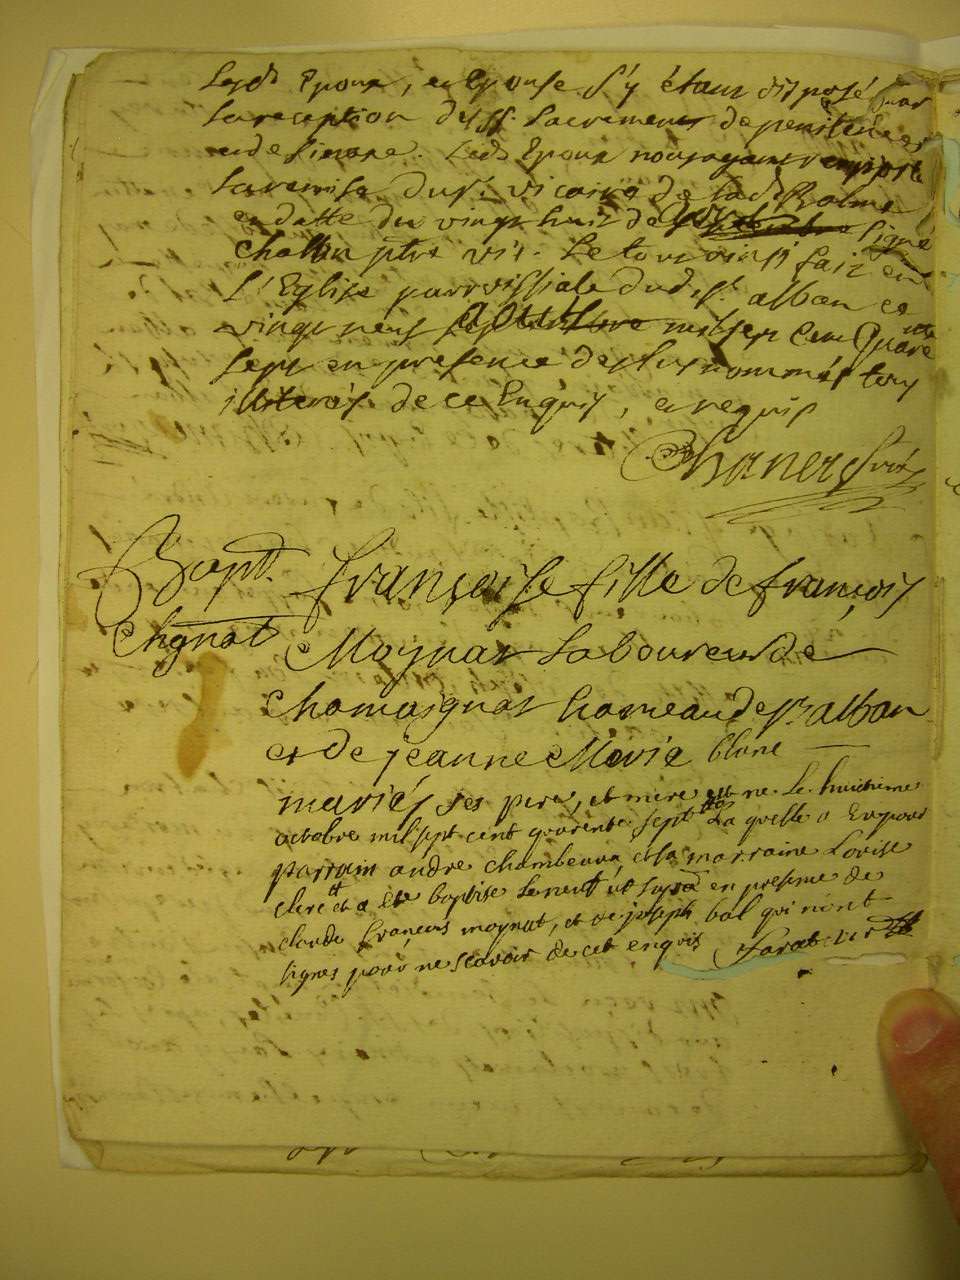 Lesd. Epoux, et Epouse s'y étant disposé par
la reception des SS. Sacrements de penitence
et de Lesd. Epoux nous ayant rapporté
la remise du Sr. vicaire de lad. Balme
en datte du vingt huit signé
ptre vic. Le tout ainsi fait en
L'Eglise parroissiale dud. St. alban ce
vingt neuf aoust mil sept cent Quarente
sept en presence de nommés tous
illiterés de ce Enquis, et requis
vic
Bapt. françoise fille de françois
Moynat Laboureur de
chamoignat hameau de St. alban
et de jeanne Marie blanc
mariés ses pere, et mere est ne Le huictieme
octobre mil sept cent quarente sept La quelle a Eu pour
parrain andre et sa marraine Lovise
clerc et a été baptisé Le ut supra en presence de
claude françois moynat, et de joseph bal qui n'ont
signes pour ne scavoir de cet enquis